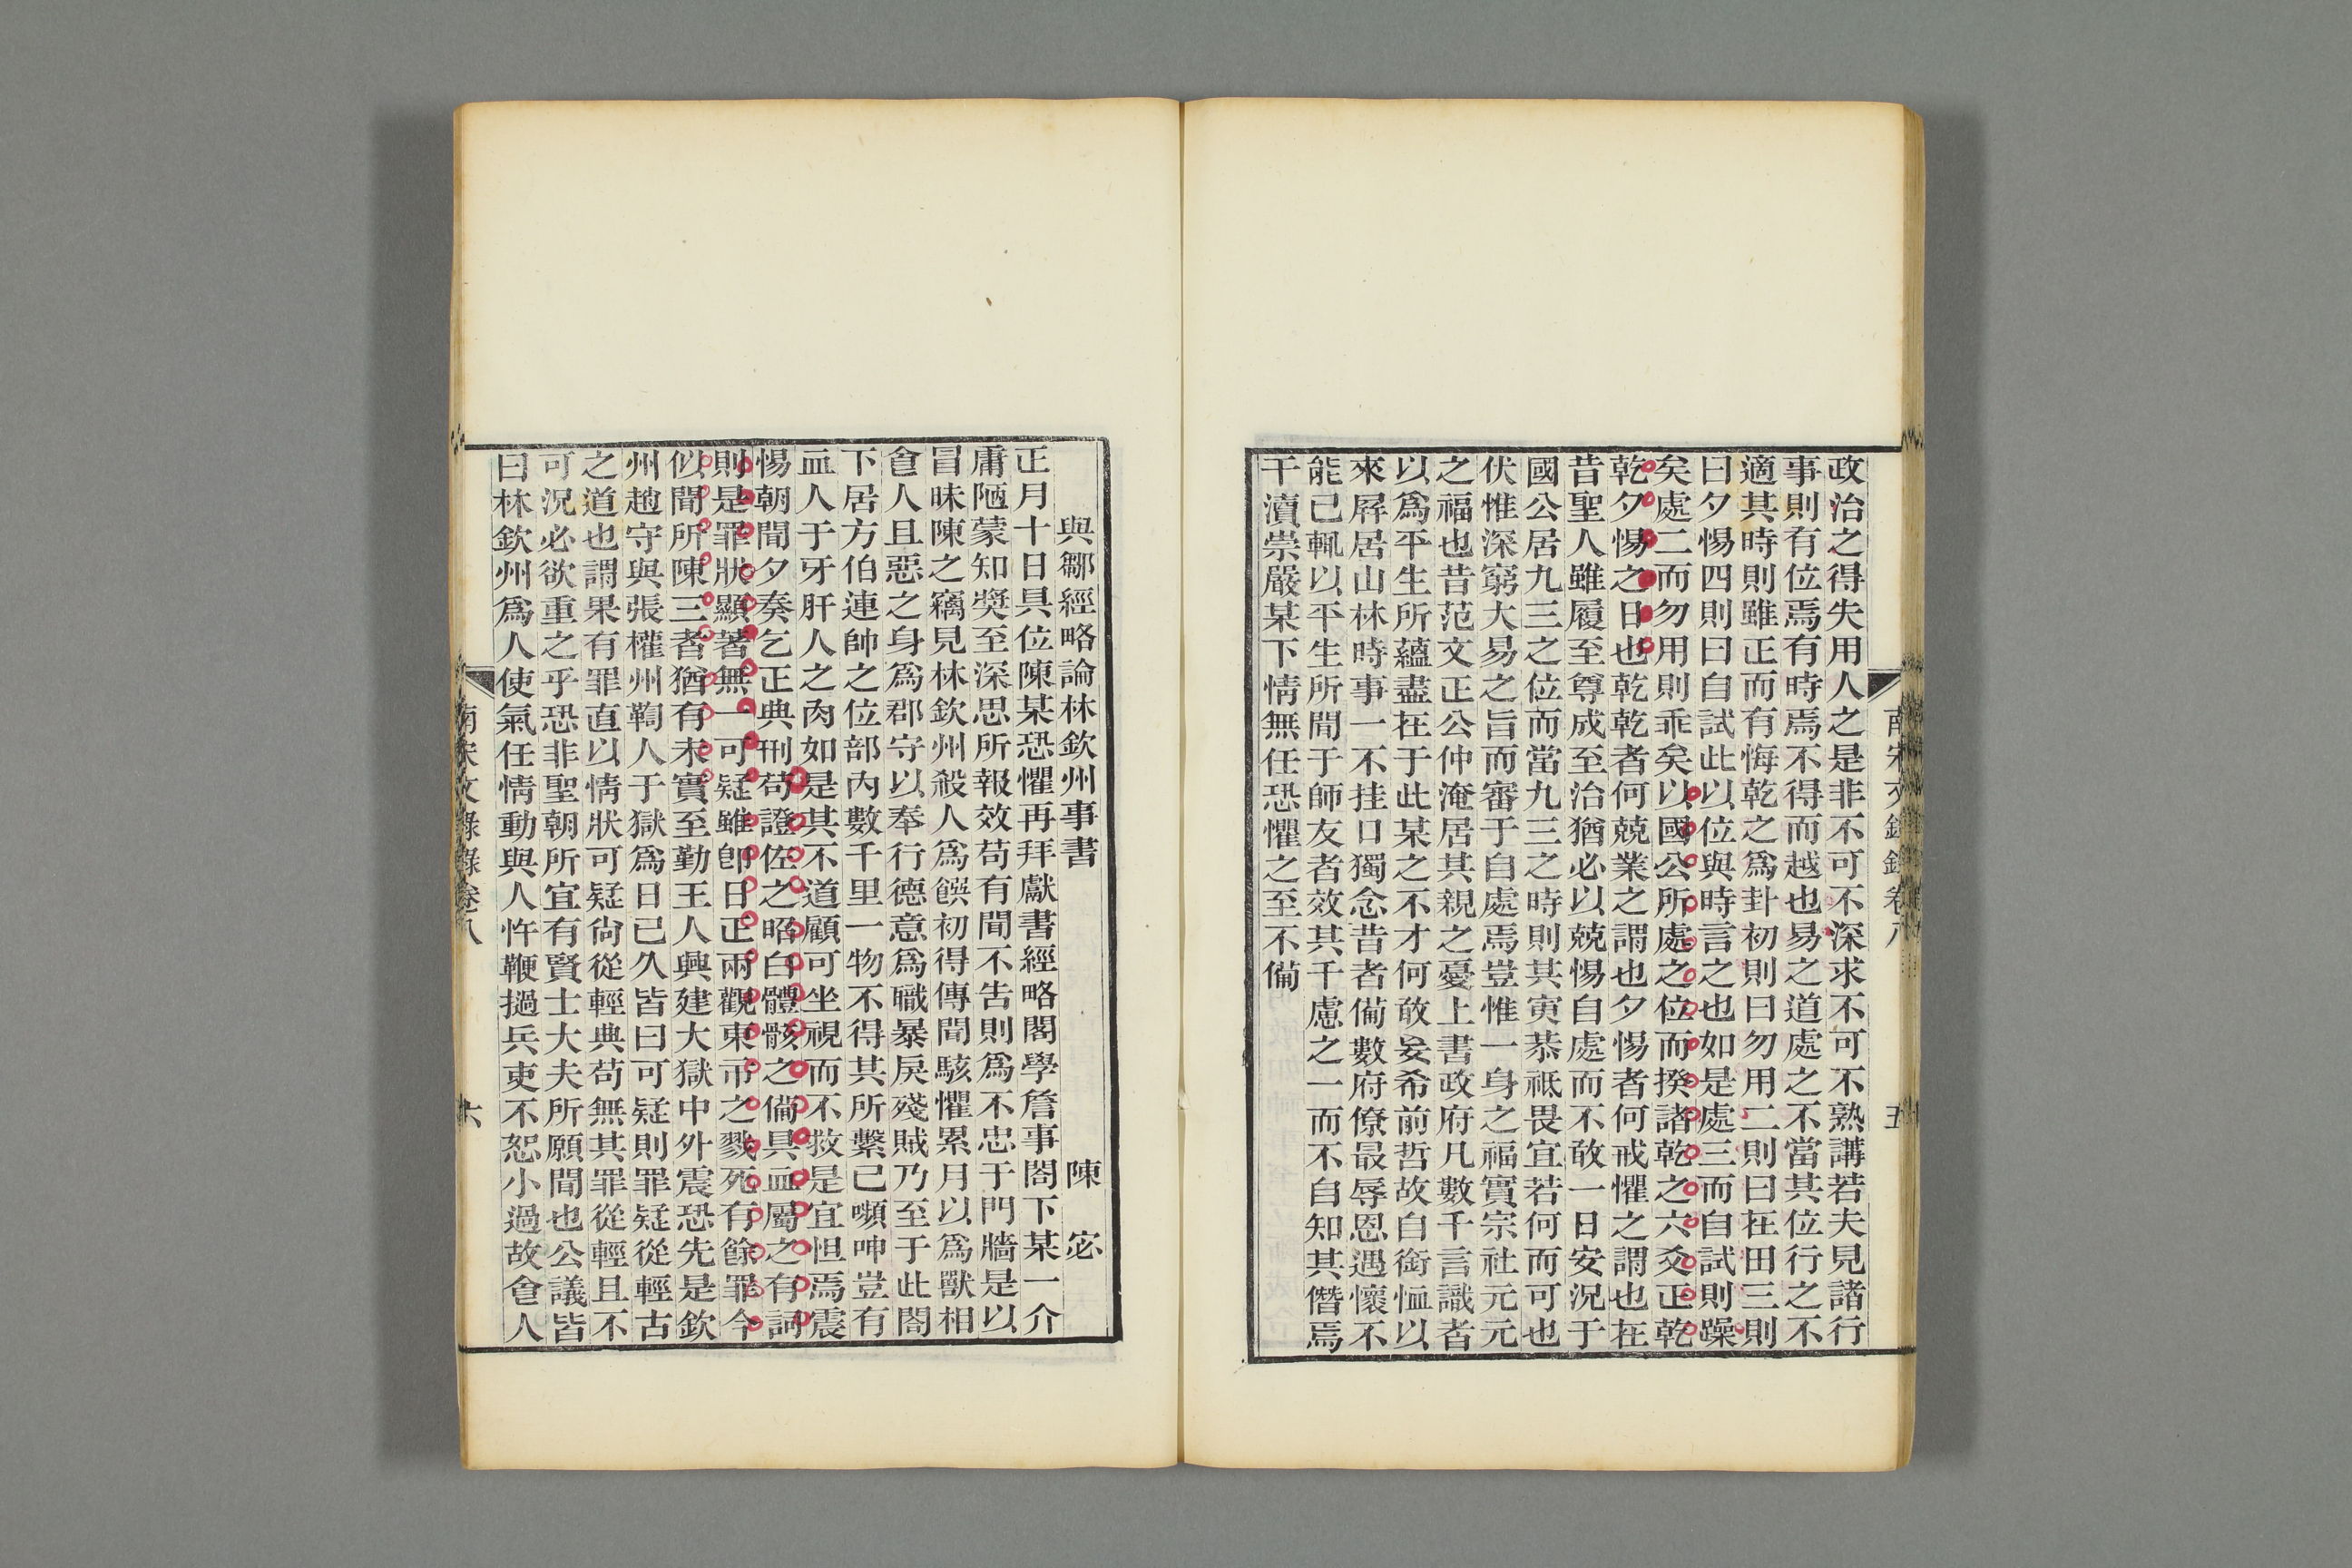 政治之得失用人之是非不可不深求不可不熟講若夫見諸行
事則有位焉有時焉不得而越也易之道處之不當其位行之不
適其時則雖正而有悔乾之爲卦初則曰勿用二則曰在田三則
曰夕惕四則曰自試此以位與時言之也如是處三而自試則躁
矣處二而勿用則乖矣以國公所處之位而揆諸乾之六爻正乾
乾夕惕之日也乾乾者何兢業之謂也夕惕者何戒懼之謂也在
昔聖人雖履至尊成至治猶必以兢惕自處而不敢一日安況于
國公居九三之位而當九三之時則其寅恭祗畏宜若何而可也
伏惟深窮大易之旨而審于自處焉豈惟一身之福實宗社元元
之福也昔范文正公仲淹居其親之憂上書政府凡數千言識者
以爲平生所蘊盡在于此某之不才何敢妄希前哲故自銜恤以
來屛居山林時事一不挂口獨念昔者僃數府僚最辱恩遇懷不
能已輒以平生所聞于師友者效其千慮之一而不自知其僭焉
干瀆崇嚴某下情無任恐懼之至不僃
南宋文錄錄卷八
五
與鄒經略論林欽州事書 陳宓
正月十日具位陳某恐懼再拜獻書經略閣學詹事閤下某一介
庸陋蒙知奬至深思所報效苟有聞不告則爲不忠于門牆是以
冒昧陳之竊見林欽州殺人爲饌初得傳聞駭懼累月以爲獸相
食人且惡之身爲郡守以奉行德意爲職暴戾殘賊乃至于此閤
下居方伯連帥之位部內數千里一物不得其所繫已嚬呻豈有
血人于牙肝人之肉如是其不道顧可坐視而不救是宜怛焉震
惕朝聞夕奏乞正典刑苟證佐之昭白體骸之僃具血屬之有訶
則是罪狀顯著無一可疑雖卽日正兩觀東市之戮死有餘罪今
似聞所陳三者猶有未實至勤王人興建大獄中外震恐先是欽
州趙守與張權州鞫人于獄爲日已久皆曰可疑則罪疑從輕古
之道也謂果有罪直以情狀可疑尙從輕典苟無其罪從輕且不
可況必欲重之乎恐非聖朝所宜有賢士大夫所願聞也公議皆
曰林欽州爲人使氣任情動與人忤鞭撾兵吏不恕小過故食人
南宋文錄錄卷八
六